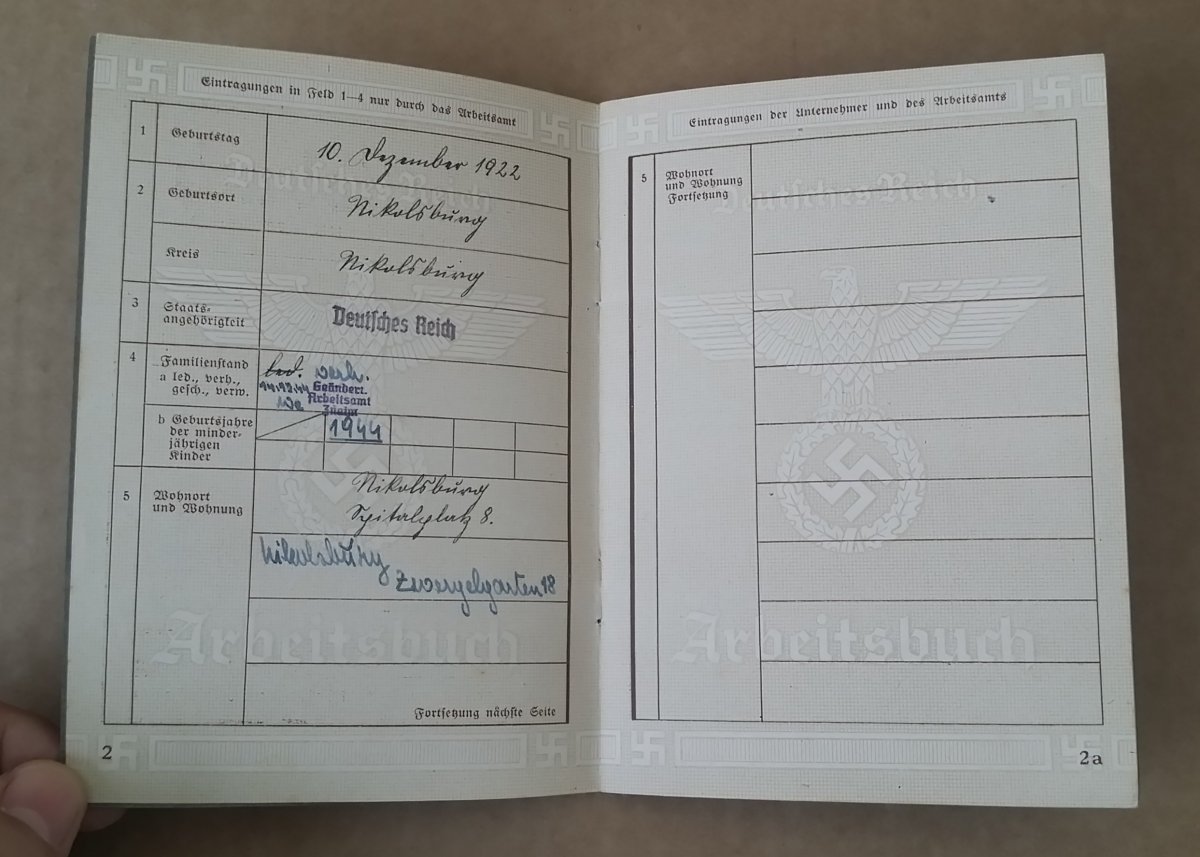 Eintragungen in Feld 1—4 nur durch das Arbeitsamt
1 Geburtstag 10. Dezember 1922
2 Geburtsort Nikolsburg
Kreis Nikolsburg
3 Staats-
angehörigkeit Deutsches Reich
4 Familienstand led. verh.
a led., verh.,
gesch., verw.
14.12.44 Geändert.
Arbeitsamt
Znaim
b Geburtsjahre
der minder-
jährigen
Kinder
1944
5 Wohnort
und Wohnung
Nikolsburg
Spitalplatz 8.
Nikolsburg
Zwergelgarten 18
Deutsches Reich
Arbeitsbuch
Fortsetzung nächste Seite
2
Eintragungen der Unternehmer und des Arbeitsamts
5 Wohnort
und Wohnung
Fortsetzung
Deutsches Reich
Arbeitsbuch
2a